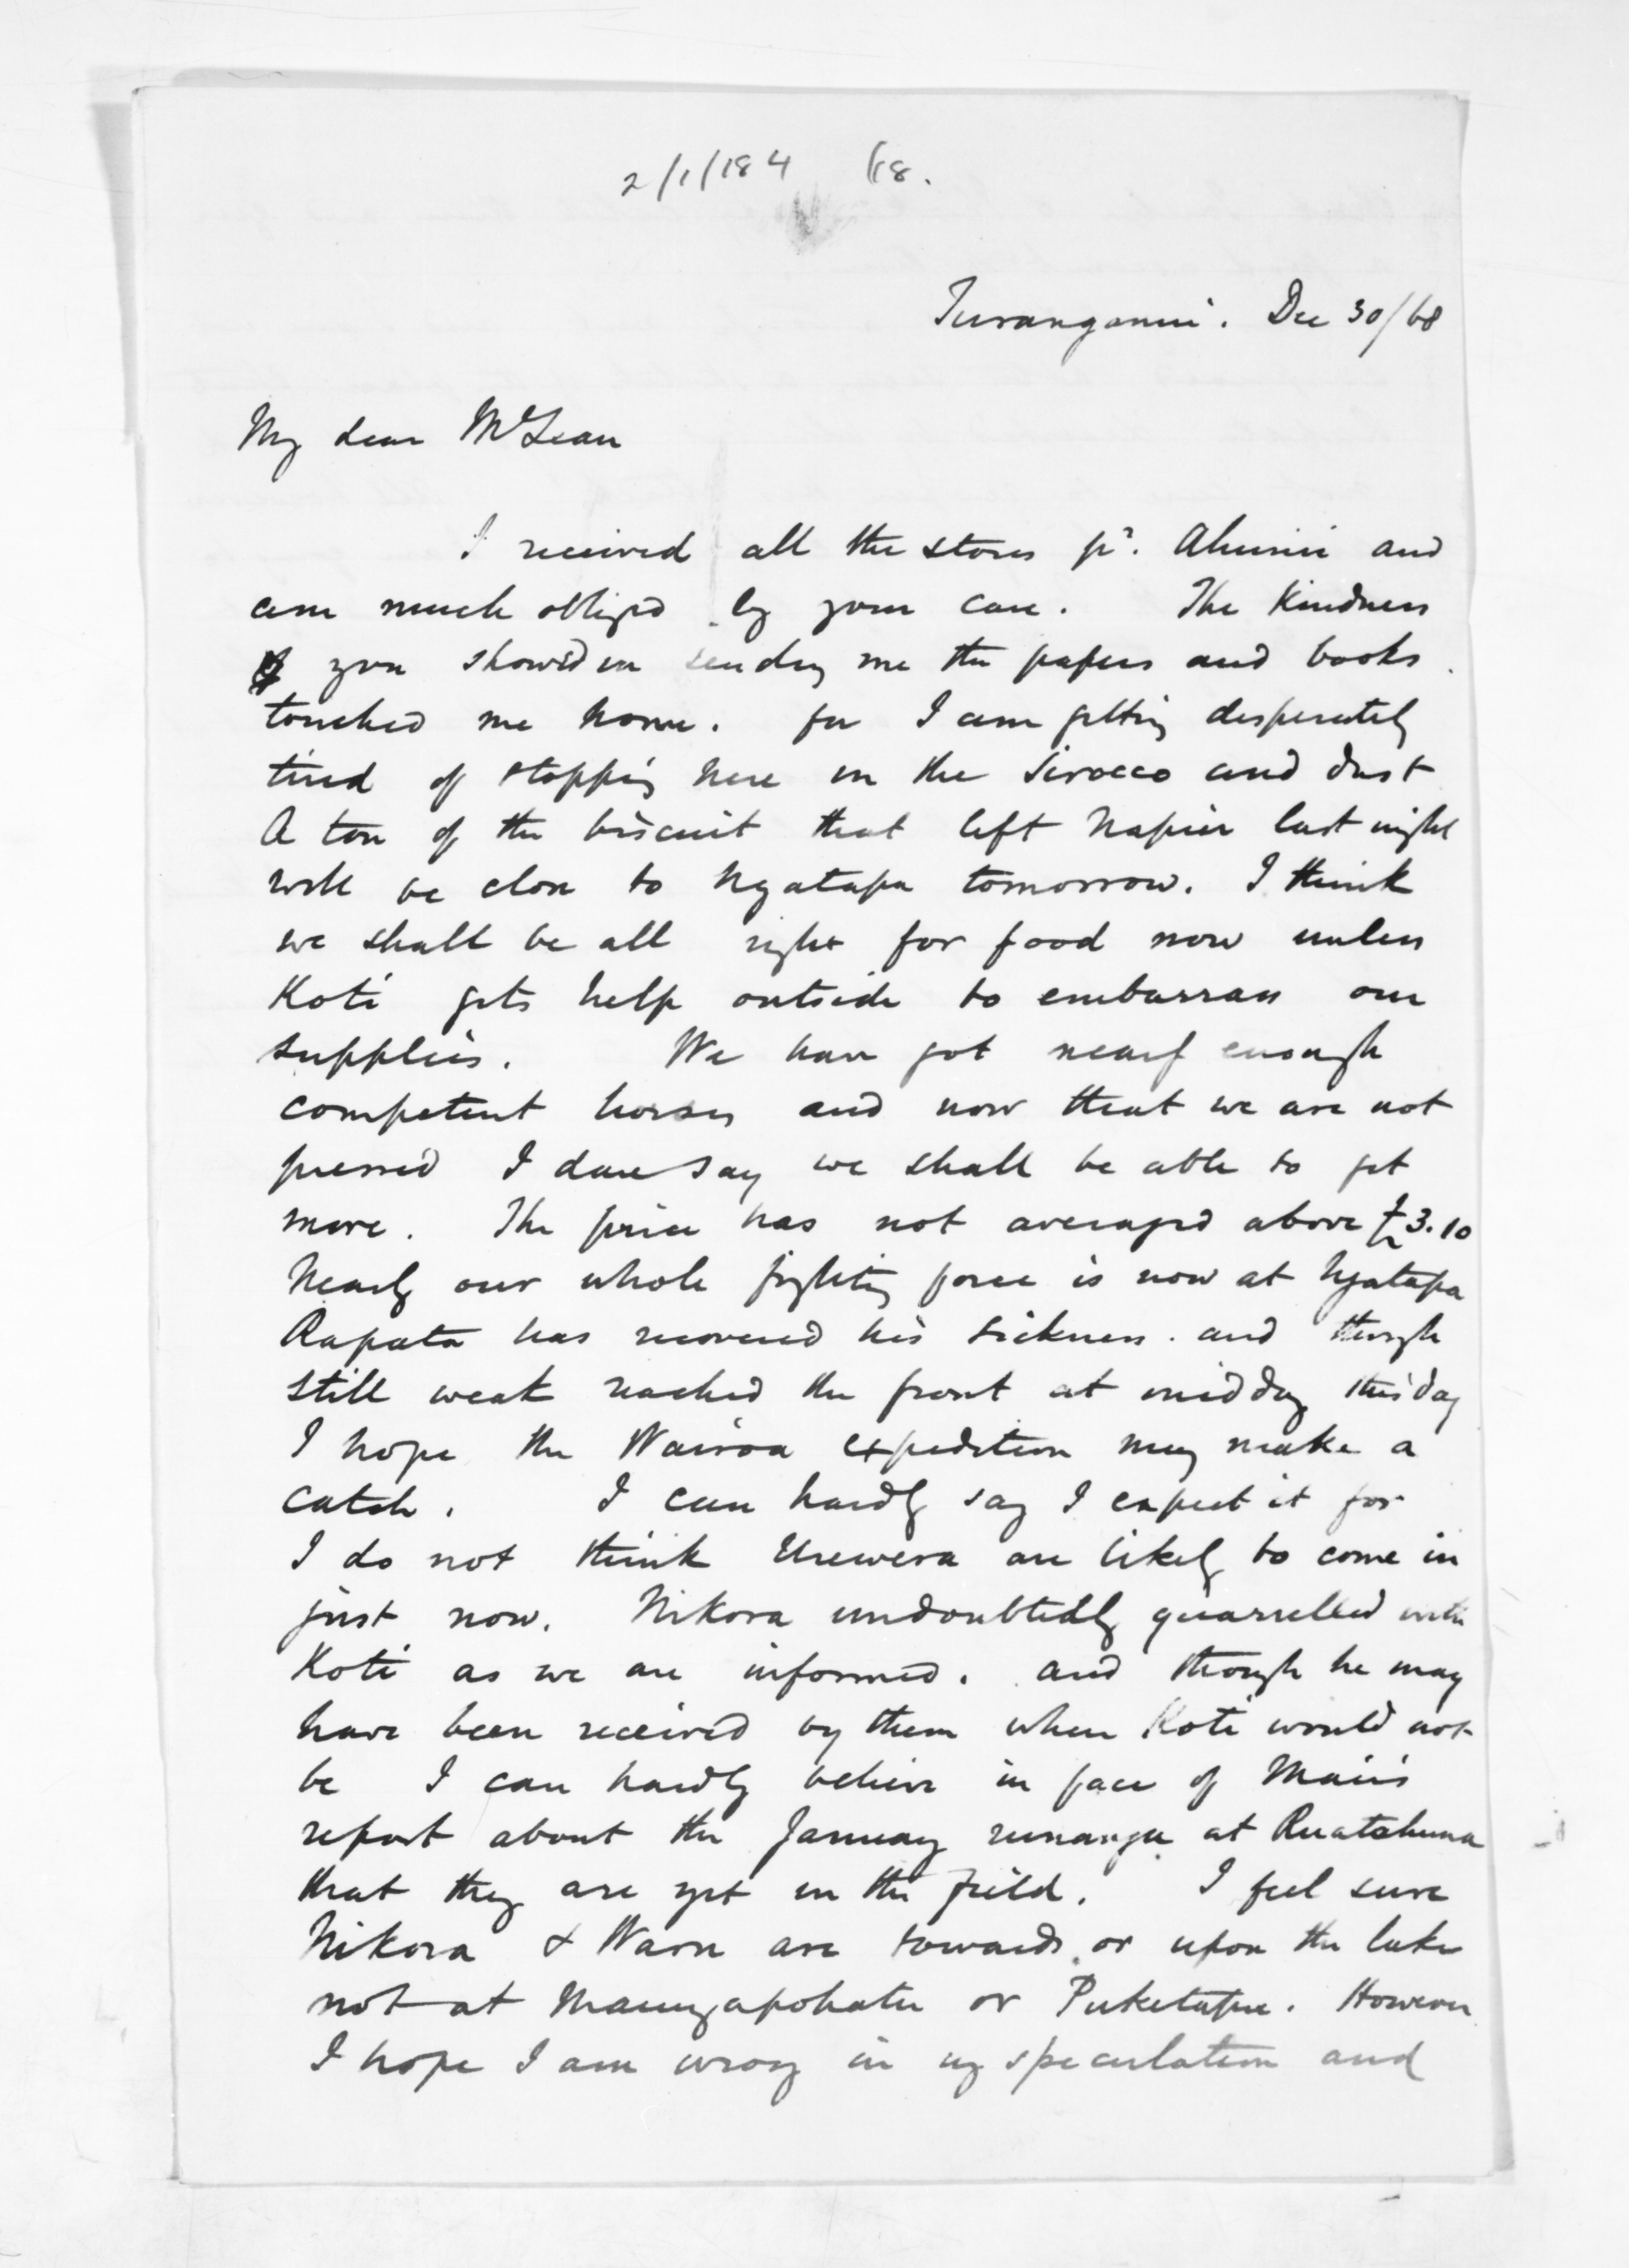 2/1/184 68.
Turanganui. Dec 30/68
My dear McLean
I received all the stores pr. Ahuriri and
am much obliged by your care. The kindness
you showed in sending me the papers and books
touched me home. for I am getting desperately
tired of stopping here in the Sirocco and dust
A ton of the biscuit that left Napier last night
will be close to Ngatapa tomorrow. I think
we shall be all right for food now unless
Koti gets help outside to embarrass our
supplies. We have got nearly enough
competent horses and now that we are not
pressed I dare say we shall be able to get
more. The price has not averaged above £3.10
Nearly our whole fighting force is now at Ngatapa
Rapata has recovered his sickness. and though
still weak reached the front at midday this day
I hope the Wairoa expedition may make a
catch. I can hardly say I expect it for
I do not think Urewera are likely to come in
just now. Nikora undoubtedly quarrelled with
Koti as we are informed. and though he may
have been received by them when Koti would not
be I can hardly believe in face of Mair's
report about the January runanga at Ruatahuna
that they are yet in the field. I feel sure
Nikora & Waru are towards or upon the lake
not at Maungapohatu or Puketapu. However
I hope I am wrong in my speculation and